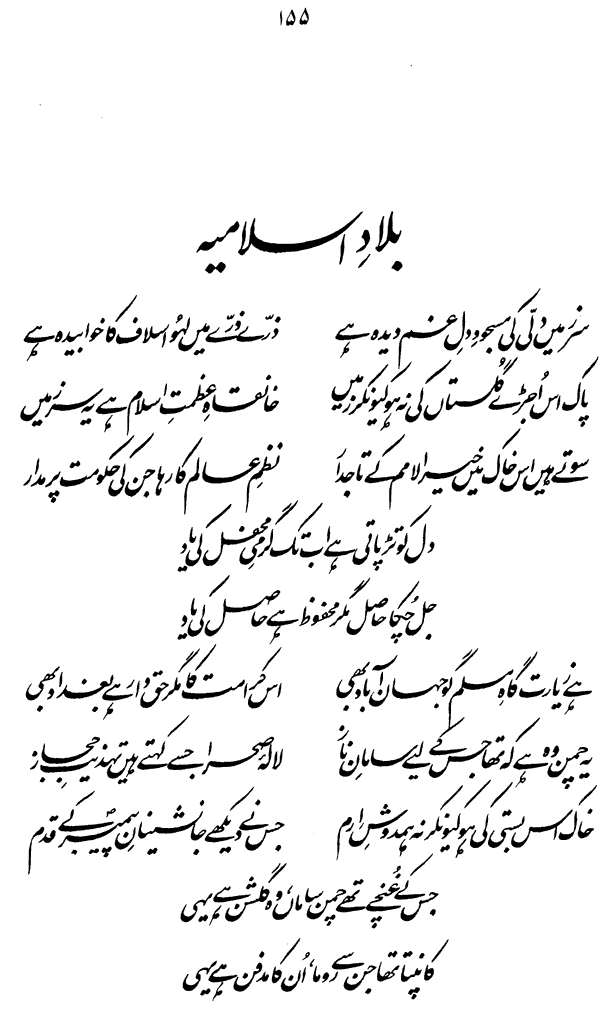 ۱۵۵
بلادِ اسلامیہ
سرزمیں دلّی کی مسجودِ دلِ غم دیدہ ہے ذرّے ذرّے میں لہُو اسلاف کا خوابیدہ ہے
پاک اس اُجڑے گُلستاں کی نہ ہو کیونکر زمیں خانقاہِ عظمتِ اسلام ہے یہ سرزمیں
سوتے ہیں اس خاک میں خیرالامم کے تاجدار نظمِ عالم کا رہا جن کی حکومت پر مدار
دل کو تڑپاتی ہے اب تک گرمیِ محفل کی یاد
جل چُکا حاصل مگر محفوظ ہے حاصل کی یاد
ہے زیارت گاہِ مسلم گو جہان آباد بھی اس کرامت کا مگر حق دار ہے بغداد بھی
یہ چمن وہ ہے کہ تھا جس کے لیے سامانِ ناز لالۂ صحرا جسے کہتے ہیں تہذیبِ حجاز
خاک اس بستی کی ہو کیونکر نہ ہمدوشِ اِرم جس نے دیکھے جانشینانِ پیمبرؐ کے قدم
جس کے غُنچے تھے چمن ساماں، وہ گلشن ہے یہی
کانپتا تھا جن سے روما، اُن کا مدفن ہے یہی